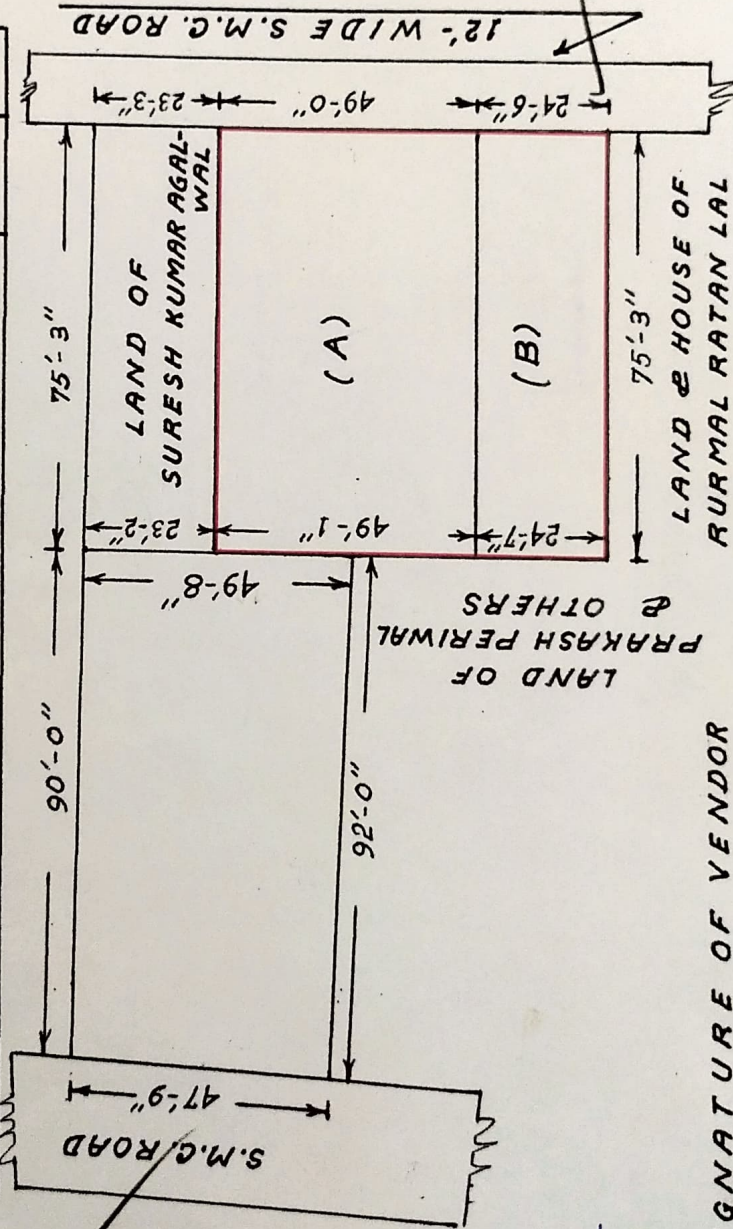 12'- WIDE S.M.C. ROAD
23'-3"
49'-0"
24'-6"
75'-3"
LAND OF
SURESH KUMAR AGAL-
WAL
(A)
(B)
75'-3"
LAND & HOUSE OF
RURMAL RATAN LAL
23'-2"
49'-1"
24'-7"
49'-8"
LAND OF
PRAKASH PERIWAL
& OTHERS
90'-0"
92'-0"
47'-9"
S.M.C. ROAD
GNATURE OF VENDOR